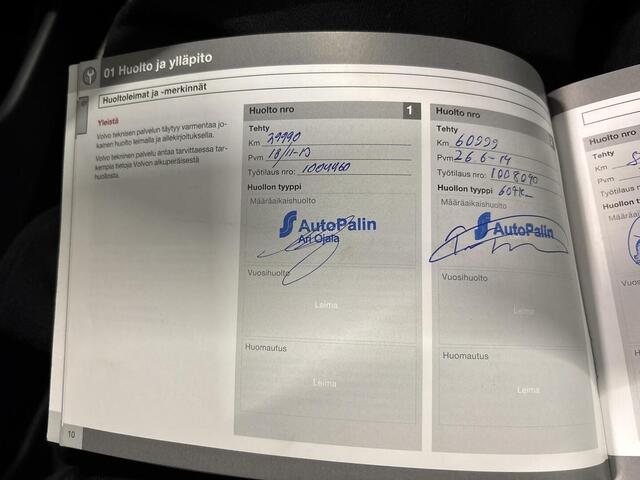 01 Huolto ja ylläpito
Huoltoleimat ja -merkinnät
Yleistä
Volvo teknisen palvelun täytyy varmentaa jo-
kainen huolto leimalla ja allekirjoituksella.
Volvo tekninen palvelu antaa tarvittaessa tar-
kempia tietoja Volvon alkuperäisestä
huollosta.
10
Huolto nro 1
Tehty
Km 29990
Pvm 18/11-13
Työtilaus nro: 1004960
Huollon tyyppi
Määräaikaishuolto
AutoPalin
Ari Ojala
Vuosihuolto
Leima
Huomautus
Leima
Huolto nro
Tehty
Km 60999
Pvm 26 6-14
Työtilaus nro: 1008090
Huollon tyyppi 60TK
Määräaikaishuolto
AutoPalin
Vuosihuolto
Leima
Huomautus
Leima
Huolto nro
Tehty
Km
Pvm
Työtilaus
Huollon t
Määräaik
Vuos
Huom